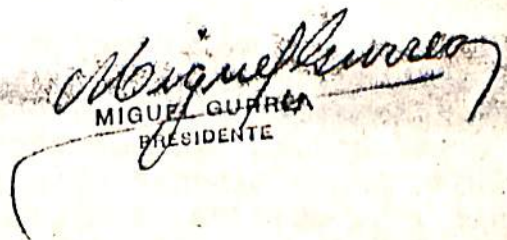 Miguel Gurrea
MIGUEL GURREA
PRESIDENTE